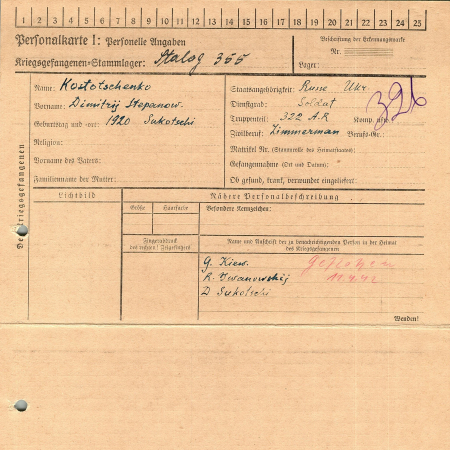 1 2 3 4 5 6 7 8 9 10 11 12 13 14 15 16 17 18 19 20 21 22 23 24 25
Personalkarte I: Personelle Angaben
Kriegsgefangenen-Stammlager: Stalag 355
Beschriftung der Erkennungsmarke
Nr.
Lager:
Des Kriegsgefangenen
Name: Kostotschenko
Vorname: Dimitrij Stepanow.
Geburtstag und -ort: 1920 Sukotschi
Religion:
Vorname des Vaters:
Familienname der Mutter:
Staatsangehörigkeit: Russe Ukr.
Dienstgrad: Soldat
Truppenteil: 322 A.R Komp. usw.
Zivilberuf: Zimmerman Berufs-Gr.
Matrikel Nr. (Stammrolle des Heimatstaates):
Gefangennahme (Ort und Datum):
Ob gesund, krank, verwundet eingeliefert:
326
Lichtbild
Nähere Personalbeschreibung
Größe
Haarfarbe
Besondere Kennzeichen:
Fingerabdruck
des rechten! Zeigefingers
Name und Anschrift der zu benachrichtigenden Person in der Heimat
des Kriegsgefangenen
G. Kiew.
R. Iwanowskij
D Sukotschi
Geflohen
11.4.42
Wenden!